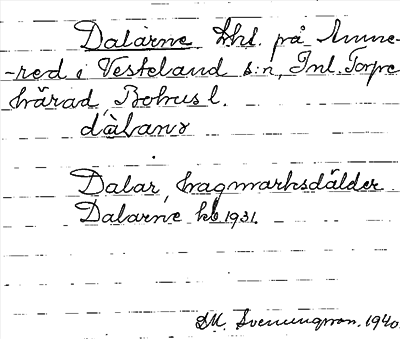 Dalarne khl. på Amne-
-red i Vesteland s:n, Inl. Torpe
härad, Bohus l.
dàlanər
Dalar, hagmarksdälder
Dalarne kb 1931.
D.M. Svenungsson. 1940.